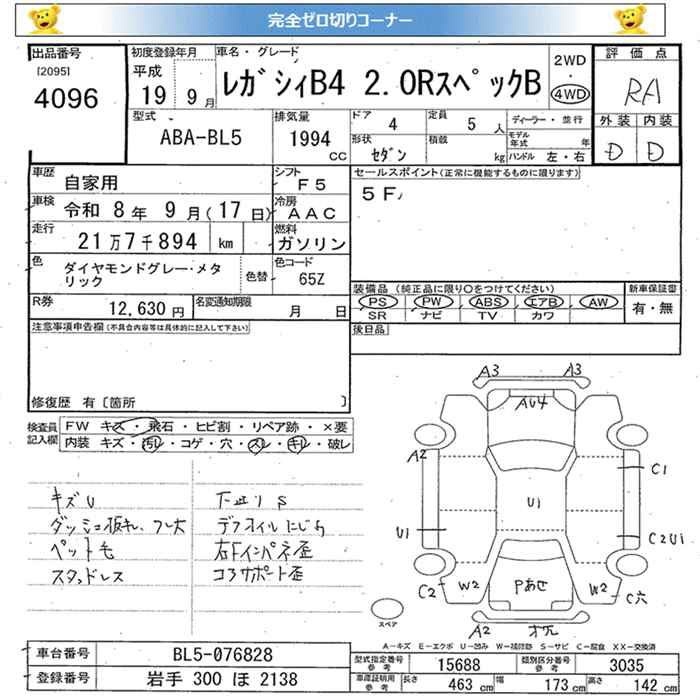 完全ゼロ切りコーナー
出品番号
[2095]
4096
初度登録年月
平成
19 9月
車名・グレード
レガシィB4 2.0RスペックB
2WD
・
4WD
評価点
RA
型式
ABA-BL5
排気量
1994
CC
ドア
4
定員
5 人
ディーラー・並行
モデル年式 年
ハンドル 左・右
外装 内装
D D
形状
セダン
積載
kg
車歴
自家用
シフト
F5
セールスポイント(正常に機能するものに限ります)
5F
車検
令和 8年 9月(17日)
冷房
AAC
走行
21万7千894 km
燃料
ガソリン
色
ダイヤモンドグレー・メタリック
色替
色コード
65Z
装備品(純正品に限り○をつけてください)
新車保証書
PS PW ABS エアB AW
SR ナビ TV カワ
有・無
R券
12,630円
名変通知期限
月 日
後日品
注意事項申告欄(不具合内容等は具体的に記入して下さい)
修復歴 有〔箇所 〕
検査員記入欄
FW キズ・飛石・ヒビ割・リペア跡・×要
内装 キズ・汚れ・コゲ・穴・スレ・キレ・破レ
キズU
下廻りS
ペット毛
スタッドレス
コアサポート歪
右Fインパネ歪
A3 A3
AU4
A2
C1
U1
U1
C2U1
C2
W2
Pあせ
W2
C穴
スペア
A2
A-キズ E-エクボ U-凹み W-補修跡 S-サビ C-腐食 XX-交換済
車台番号
BL5-076828
型式指定番号
参考
15688
類別区分番号
参考
3035
登録番号
岩手 300 ほ 2138
車庫証明用
参考
長さ 463 cm
幅 173 cm
高さ 142 cm